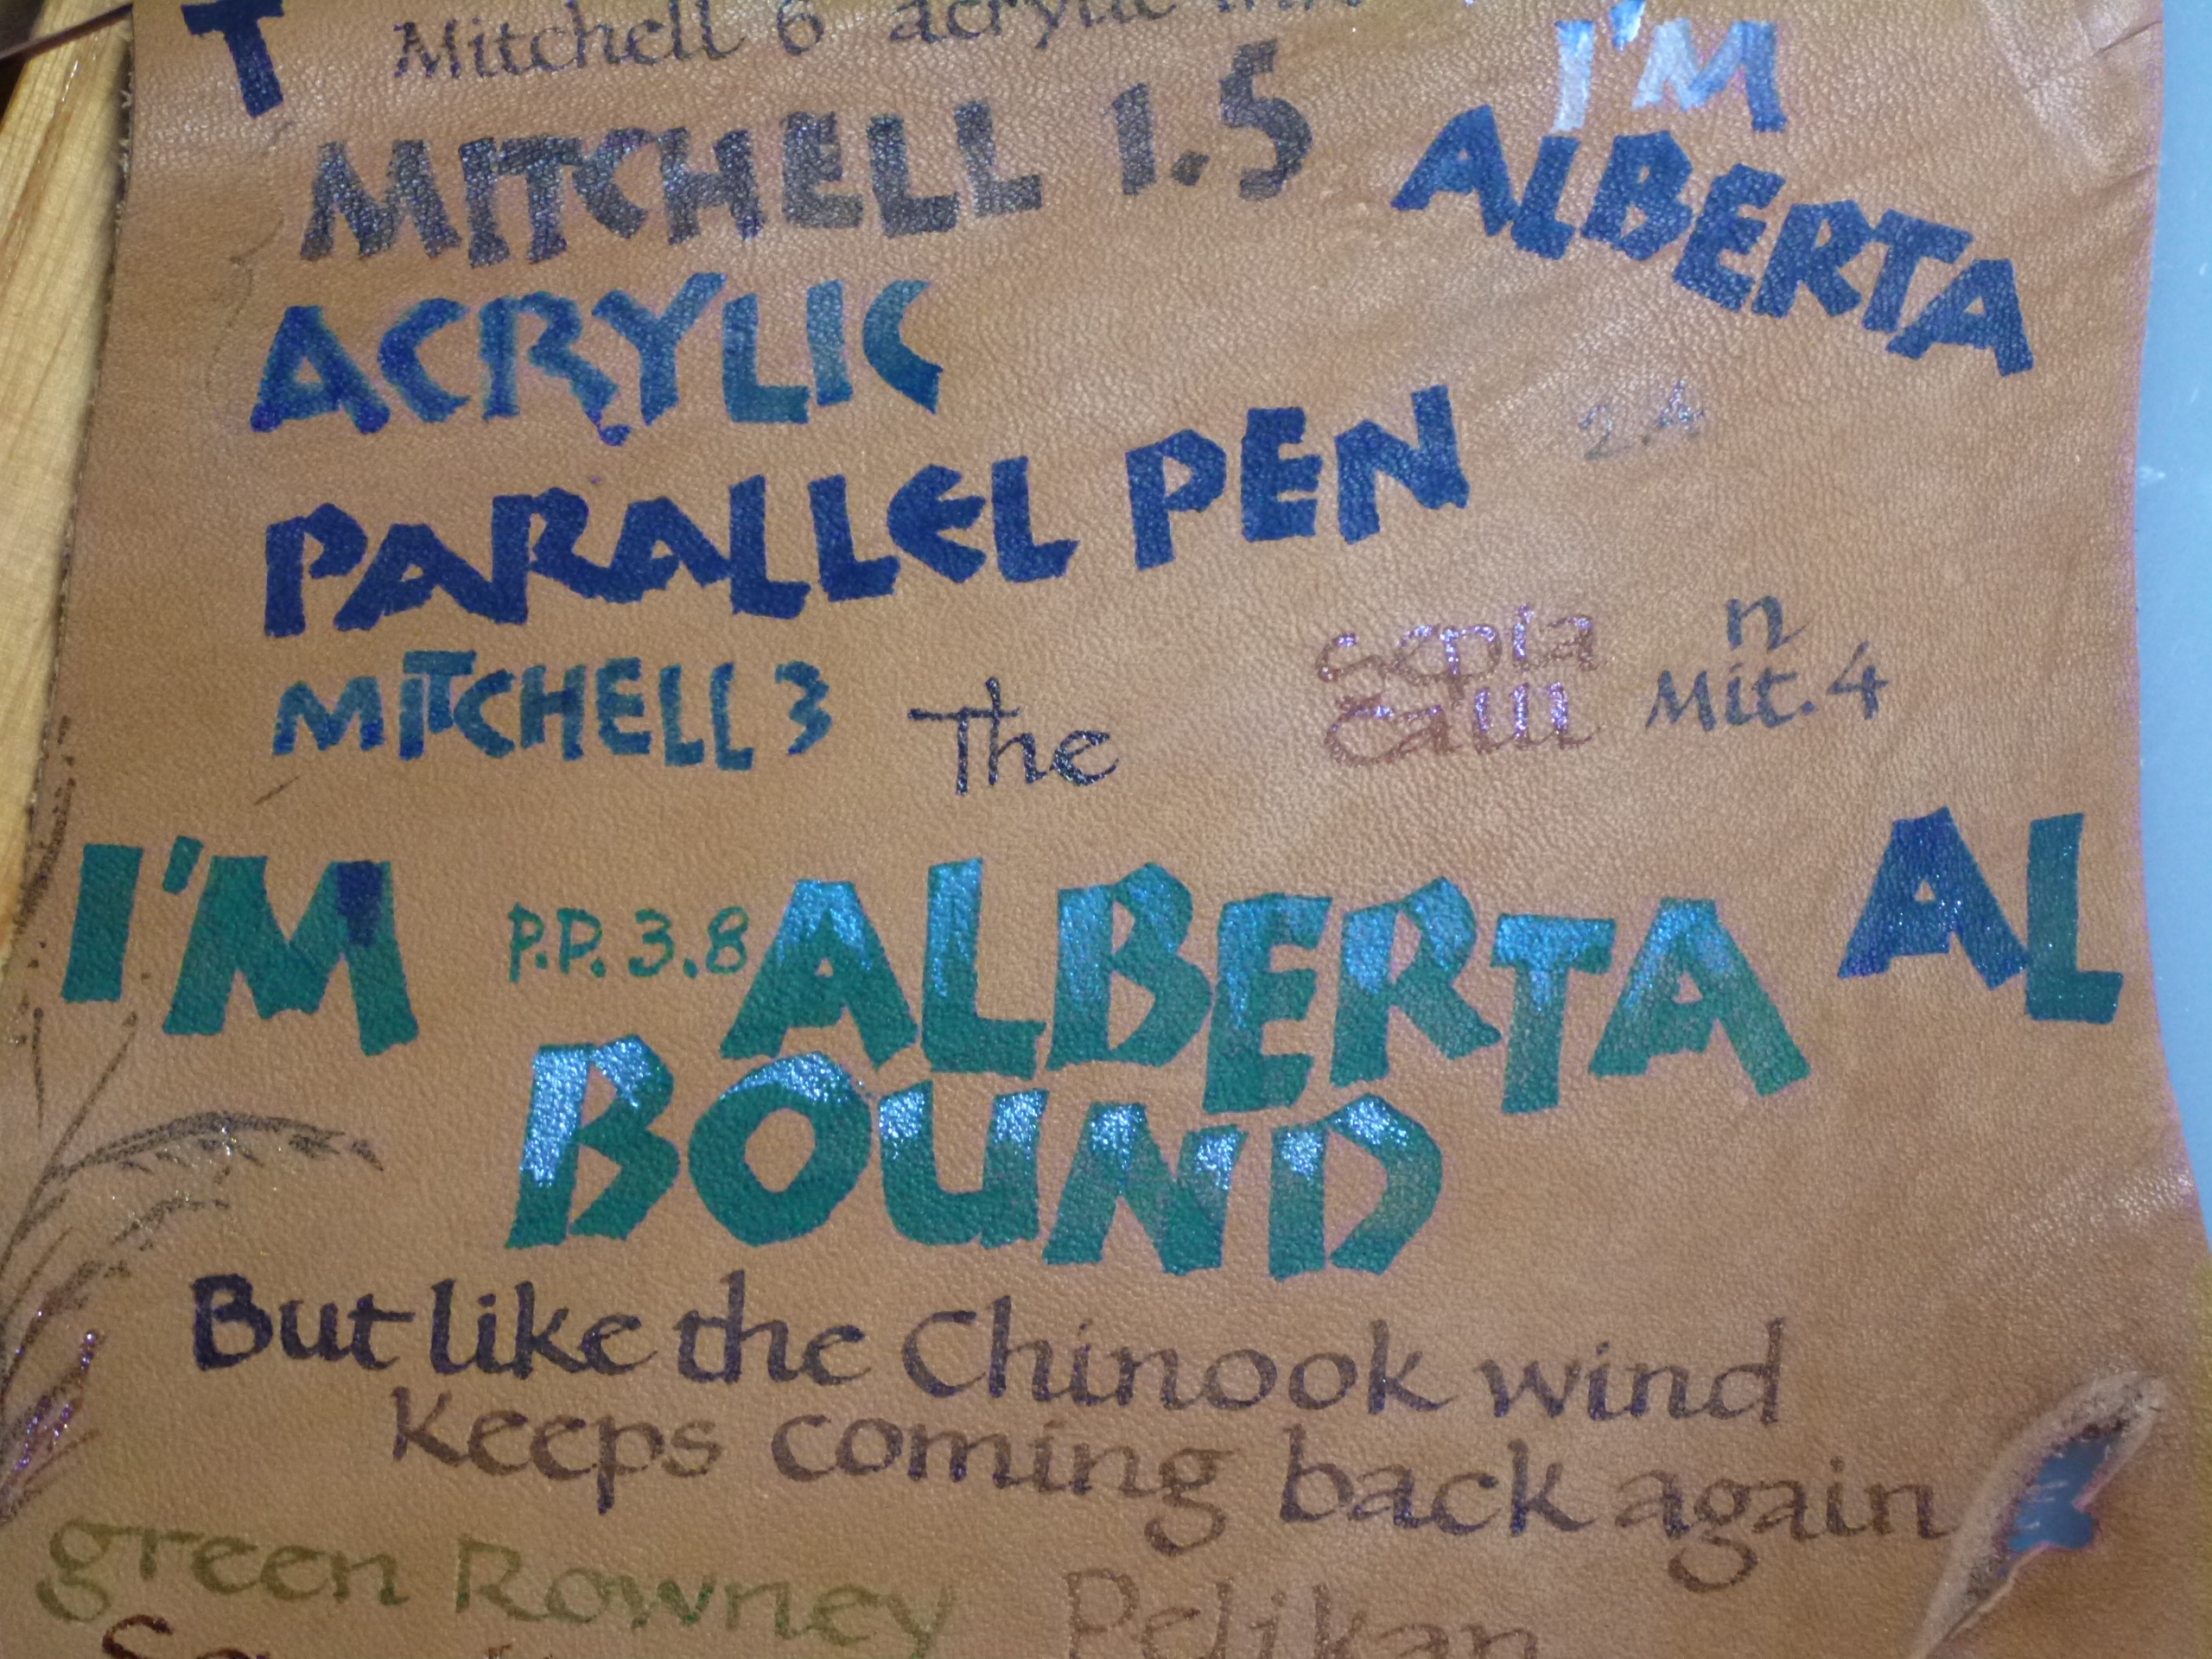 T
Mitchell 6 acrylic ink
MITCHELL 1.5
I'M
ALBERTA
ACRYLIC
PARALLEL PEN
2.4
MITCHELL 3
The
sepia
Calli
n
Mit. 4
I'M
P.P. 3.8
ALBERTA
AL
BOUND
But like the Chinook wind
Keeps coming back again
green Rowney
Pelikan